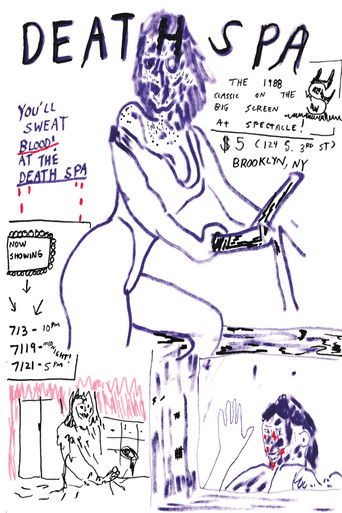 DEATH SPA
THE 1988
CLASSIC ON THE
BIG SCREEN
AT SPECTACLE!
$5 (124 S. 3RD ST)
BROOKLYN, NY
YOU'LL
SWEAT
BLOOD!
AT THE
DEATH SPA
NOW
SHOWING
7/3 - 10PM
7/19 - MIDNIGHT!
7/21 - 5PM!